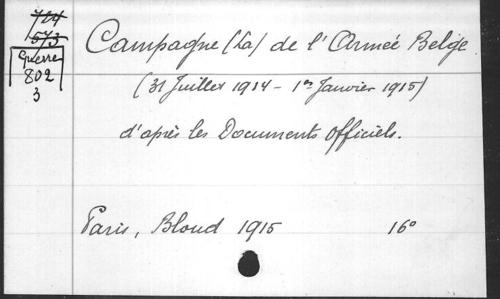 724
573
Guerre
802
3
Campagne (La) de l'Armée Belge
(31 Juillet 1914 - 1er Janvier 1915)
d'après les Documents Officiels.
Paris, Bloud 1915 16°